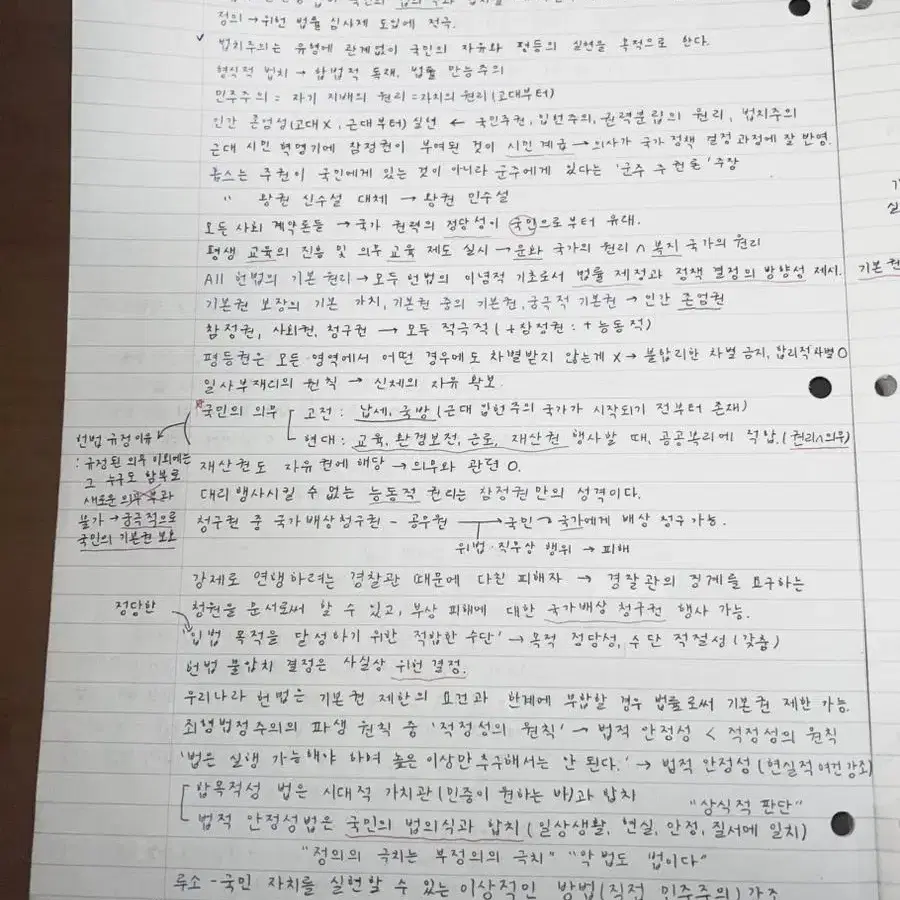 정의 → 위헌 법률 심사제 도입에 적극.
✓ 법치주의는 유형에 관계없이 국민의 자유와 평등의 실현을 목적으로 한다.
형식적 법치 → 합법적 독재, 법률 만능주의
민주주의 = 자기 지배의 원리 = 자치의 원리 (고대부터)
인간 존엄성(고대 X, 근대부터) 실현 ← 국민주권, 입헌주의, 권력분립의 원리, 법치주의
근대 시민 혁명기에 참정권이 부여된 것이 시민 계급 → 의사가 국가 정책 결정 과정에 잘 반영.
홉스는 주권이 국민에게 있는 것이 아니라 군주에게 있다는 '군주 주권론' 주장
" 왕권 신수설 대체 → 왕권 인수설
모든 사회 계약론들 → 국가 권력의 정당성이 국민으로부터 유래.
평생 교육의 진흥 및 의무 교육 제도 실시 → 문화 국가의 원리 ∧ 복지 국가의 원리
All 헌법의 기본 원리 → 모두 헌법의 이념적 기초로서 법률 제정과 정책 결정의 방향성 제시.
기본권
기본권 보장의 기본 가치, 기본권 중의 기본권, 궁극적 기본권 → 인간 존엄권
참정권, 사회권, 청구권 → 모두 적극적 (+참정권 : + 능동적)
평등권은 모든 영역에서 어떤 경우에도 차별받지 않는게 X → 불합리한 차별 금지, 합리적 차별 O
일사부재리의 원칙 → 신체의 자유 확보.
국민의 의무 고전 : 납세, 국방 (근대 입헌주의 국가가 시작되기 전부터 존재)
현대 : 교육, 환경보전, 근로, 재산권 행사할 때, 공공복리에 적합. (권리∧의무)
헌법 규정이유
: 규정된 의무 이외에는
그 누구도 함부로
새로운 의무 부과
불가 → 궁극적으로
국민의 기본권 보호
재산권도 자유권에 해당 → 의무와 관련 O.
대리 행사시킬 수 없는 능동적 권리는 참정권만의 성격이다.
청구권 중 국가배상청구권 - 공무원 → 국민 → 국가에게 배상 청구 가능.
위법·직무상 행위 → 피해
강제로 연행하려는 경찰관 때문에 다친 피해자 → 경찰관의 징계를 요구하는
청원을 문서로써 할 수 있고, 부상 피해에 대한 국가배상 청구권 행사 가능.
정당한
"입법 목적을 달성하기 위한 적합한 수단" → 목적 정당성, 수단 적절성 (갖춤)
헌법 불합치 결정은 사실상 위헌 결정.
우리나라 헌법은 기본권 제한의 요건과 한계에 부합할 경우 법률로써 기본권 제한 가능.
죄형법정주의의 파생 원칙 중 '적정성의 원칙' → 법적 안정성 < 적정성의 원칙
'법은 실행 가능해야 하며 높은 이상만 추구해서는 안 된다.' → 법적 안정성 (현실적 여건 강조)
합목적성 법은 시대적 가치관 (민중이 원하는 바)과 합치
"상식적 판단"
법적 안정성 법은 국민의 법의식과 합치 (일상생활, 현실, 안정, 질서에 일치)
"정의의 극치는 부정의의 극치" "악법도 법이다"
루소 - 국민 자치를 실현할 수 있는 이상적인 방법 (직접 민주주의) 강조